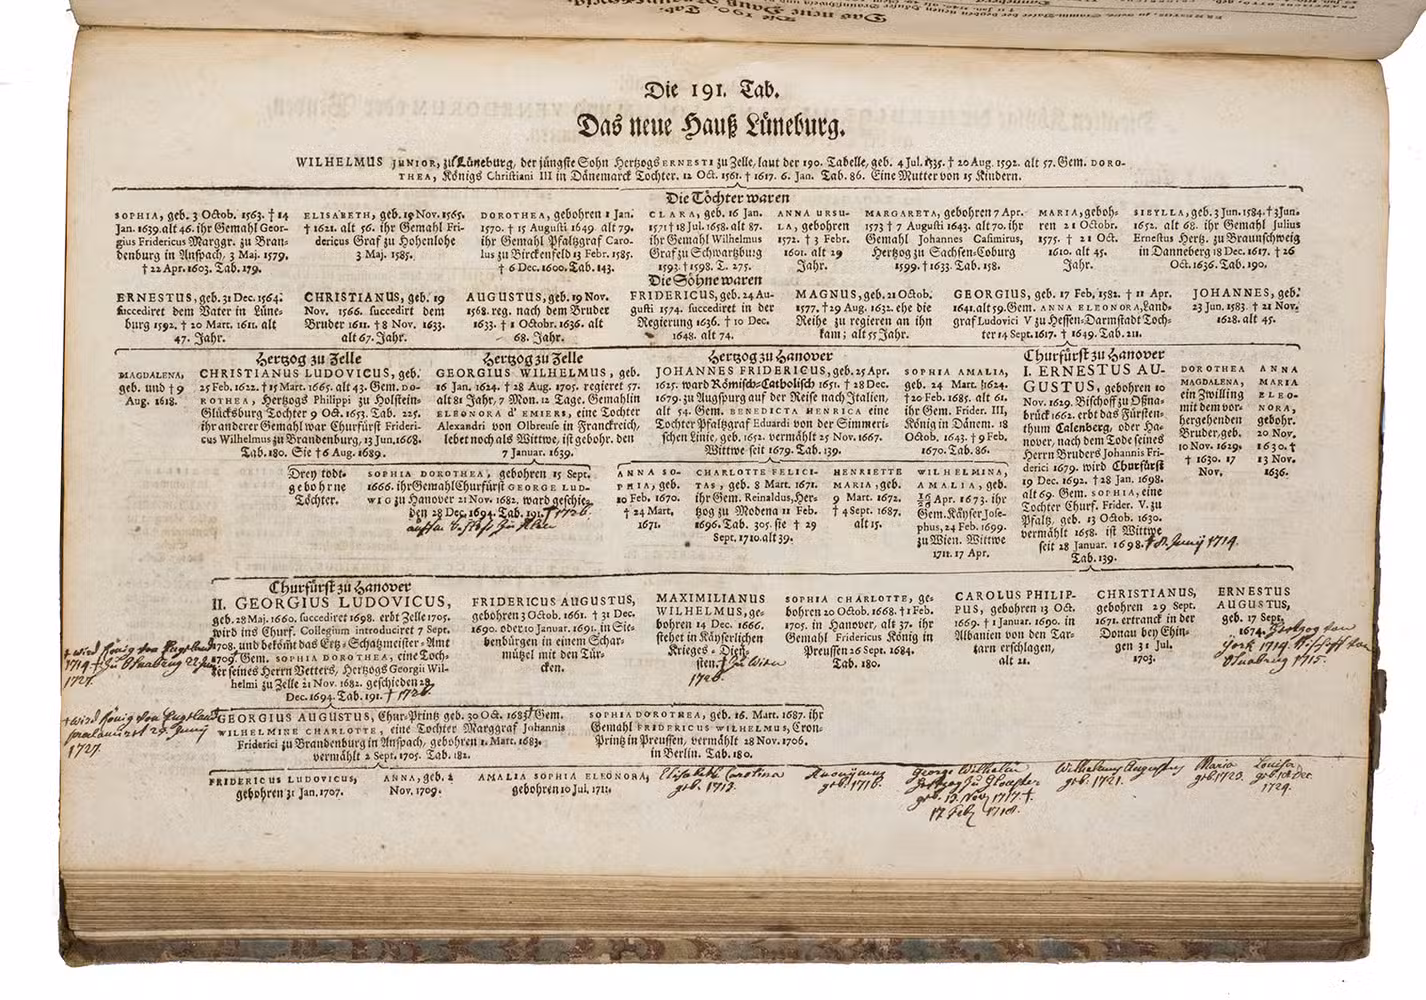 Die 191. Tab.
Das neue Hauß Lüneburg.
WILHELMUS JUNIOR, zu Lüneburg, der jüngste Sohn Hertzogs ERNESTI zu Zelle, laut der 190. Tabelle, geb. 4 Jul. 1535. † 20 Aug. 1592. alt 57. Gem. DORO-
THEA, Königs Christiani III in Dänemarck Tochter. 12 Oct. 1561. † 1617. 6. Jan. Tab. 86. Eine Mutter von 15 Kindern.
Die Töchter waren
SOPHIA, geb. 3 Octob. 1563. † 14
Jan. 1639. alt 46. ihr Gemahl Geor-
gius Fridericus Marggr. zu Bran-
denburg in Anspach, 3 Maj. 1579.
† 22 Apr. 1603. Tab. 179.
ELISABETH, geb. 19 Nov. 1565.
† 1621. alt 56. ihr Gemahl Fri-
dericus Graf zu Hohenlohe
3 Maj. 1585.
DOROTHEA, gebohren 1 Jan.
1570. † 15 Augusti 1649. alt 79.
ihr Gemahl Pfaltzgraf Caro-
lus zu Birckenfeld 13 Febr. 1585.
† 6 Dec. 1600. Tab. 143.
CLARA, geb. 16 Jan.
1571 † 18 Jul. 1658. alt 87.
ihr Gemahl Wilhelmus
Graf zu Schwartzburg
1593. † 1598. T. 275.
ANNA URSU-
LA, gebohren
1572. † 3 Febr.
1601. alt 29
Jahr.
MARGARETA, gebohren 7 Apr.
1573 † 7 Augusti 1643. alt 70. ihr
Gemahl Johannes Casimirus,
Hertzog zu Sachsen-Coburg
1599. † 1633. Tab. 158.
MARIA, geboh-
ren 21 Octobr.
1575. † 21 Oct.
1610. alt 45.
Jahr.
SIBYLLA, geb. 3 Jun. 1584. † 3 Jun.
1652. alt 68. ihr Gemahl Julius
Ernestus Hertz. zu Braunschweig
in Danneberg 18 Dec. 1617. † 26
Oct. 1636. Tab. 190.
Die Söhne waren
ERNESTUS, geb. 31 Dec. 1564.
succediret dem Vater in Lüne-
burg 1592. † 20 Mart. 1611. alt
47. Jahr.
CHRISTIANUS, geb. 19
Nov. 1566. succedirt dem
Bruder 1611. † 8 Nov. 1633.
alt 67. Jahr.
AUGUSTUS, geb. 19 Nov.
1568. reg. nach dem Bruder
1633. † 1 Octobr. 1636. alt
68. Jahr.
FRIDERICUS, geb. 24 Au-
gusti 1574. succediret in der
Regierung 1636. † 10 Dec.
1648. alt 74.
MAGNUS, geb. 21 Octob.
1577. † 29 Aug. 1632. ehe die
Reihe zu regieren an ihn
kam; alt 55 Jahr.
GEORGIUS, geb. 17 Feb. 1582. † 11 Apr.
1641. alt 59. Gem. ANNA ELEONORA, Land-
graf Ludovici V zu Hessen-Darmstadt Toch-
ter 14 Sept. 1617. † 1649. Tab. 211.
JOHANNES, geb.
23 Jun. 1583. † 21 Nov.
1628. alt 45.
MAGDALENA,
geb. und † 9
Aug. 1618.
Hertzog zu Zelle
CHRISTIANUS LUDOVICUS, geb.
25 Feb. 1622. † 15 Mart. 1665. alt 43. Gem. DO-
ROTHEA, Hertzogs Philippi zu Holstein-
Glücksburg Tochter 9 Oct. 1653. Tab. 225.
ihr anderer Gemahl war Churfürst Frideri-
cus Wilhelmus zu Brandenburg, 13 Jun. 1668.
Tab. 180. Sie † 6 Aug. 1689.
Hertzog zu Zelle
GEORGIUS WILHELMUS, geb.
16 Jan. 1624. † 28 Aug. 1705. regieret 57.
alt 81 Jahr, 7 Mon. 12 Tage. Gemahlin
ELEONORA d' EMIERS, eine Tochter
Alexandri von Olbreuse in Franckreich,
lebet noch als Wittwe, ist gebohr. den
7 Januar. 1639.
Hertzog zu Hanover
JOHANNES FRIDERICUS, geb. 25 Apr.
1625. ward Römisch-Catholisch 1651. † 28 Dec.
1679. zu Augspurg auf der Reise nach Italien,
alt 54. Gem. BENEDICTA HENRICA eine
Tochter Pfaltzgraf Eduardi von der Simmeri-
schen Linie, geb. 1652. vermählt 25 Nov. 1667.
Wittwe seit 1679. Tab. 139.
SOPHIA AMALIA,
geb. 24 Mart. 1624.
† 20 Feb. 1685. alt 61.
ihr Gem. Frider. III,
König in Dänem. 18
Octob. 1643. † 9 Feb.
1670. Tab. 86.
Churfürst zu Hanover
I. ERNESTUS AU-
GUSTUS, gebohren 10
Nov. 1629. Bischoff zu Oßna-
brück 1662. erbt das Fürsten-
thum Calenberg, oder Ha-
nover, nach dem Tode seines
Herrn Bruders Johannis Fri-
derici 1679. wird Churfürst
19 Dec. 1692. † 28 Jan. 1698.
alt 69. Gem. SOPHIA, eine
Tochter Churf. Frider. V. zu
Pfaltz, geb. 13 Octob. 1630.
vermählt 1658. ist Wittwe
seit 28 Januar. 1698. † 8. Junij 1714.
Tab. 139.
DOROTHEA
MAGDALENA,
ein Zwilling
mit dem vor-
hergehenden
Bruder, geb.
10 Nov. 1629.
† 1630. 17
Nov.
ANNA
MARIA
ELEO-
NORA,
gebohr.
20 Nov.
1630. †
13 Nov.
1636.
Drey todt-
gebohrne
Töchter.
SOPHIA DOROTHEA, gebohren 15 Sept.
1666. ihr Gemahl Churfürst GEORGE LUD-
WIG zu Hanover 21 Nov. 1682. ward geschie-
den 28 Dec. 1694. Tab. 191. † 1726.
ANNA SO-
PHIA, geb.
10 Feb. 1670.
† 24 Mart.
1671.
CHARLOTTE FELICI-
TAS, geb. 8 Mart. 1671.
ihr Gem. Reinaldus, Her-
tzog zu Modena 11 Feb.
1696. Tab. 305. sie † 29
Sept. 1710. alt 39.
HENRIETTE
MARIA, geb.
9 Mart. 1672.
† 4 Sept. 1687.
alt 15.
WILHELMINA,
AMALIA, geb.
Apr. 1673. ihr
Gem. Käyser Jose-
phus, 24 Feb. 1699.
zu Wien. Wittwe
1711. 17 Apr.
Churfürst zu Hanover
II. GEORGIUS LUDOVICUS,
geb. 28 Maj. 1660. succediret 1698. erbt Zelle 1705.
wird ins Churf. Collegium introduciret 7 Sept.
1708. und bekömt das Ertz-Schatzmeister-Amt
1709. Gem. SOPHIA DOROTHEA, eine Toch-
ter seines Herrn Vetters, Hertzogs Georgii Wil-
helmi zu Zelle 21 Nov. 1682. geschieden 28
Dec. 1694. Tab. 191. † 1726.
+ wird König von Engeland
1714 † zu Osnabrug 22 Jun
1727.
FRIDERICUS AUGUSTUS,
gebohren 3 Octob. 1661. † 31 Dec.
1690. oder 10 Januar. 1691. in Sie-
benbürgen in einem Schar-
mützel mit den Tür-
cken.
MAXIMILIANUS
WILHELMUS, ge-
bohren 14 Dec. 1666.
stehet in Käyserlichen
Krieges-Dien-
sten. † zu Wien
1726.
SOPHIA CHARLOTTE, ge-
bohren 20 Octob. 1668. † 1 Feb.
1705. in Hanover, alt 37. ihr
Gemahl Fridericus König in
Preussen 26 Sept. 1684.
Tab. 180.
CAROLUS PHILIP-
PUS, gebohren 13 Oct.
1669. † 1 Januar. 1690. in
Albanien von den Tar-
tarn erschlagen,
alt 21.
CHRISTIANUS,
gebohren 29 Sept.
1671. ertranck in der
Donau bey Ehin-
gen 31 Jul.
1703.
ERNESTUS
AUGUSTUS,
geb. 17 Sept.
1674. Hertzog von
York 1714. Bischoff von
Osnabrug 1715.
+ wird König von Engeland
proclamirt 25 Junij
1727.
GEORGIUS AUGUSTUS, Chur-Printz geb. 30 Oct. 1683 † Gem.
WILHELMINE CHARLOTTE, eine Tochter Marggraf Johannis
Friderici zu Brandenburg in Anspach, gebohren 1. Mart. 1683.
vermählt 2 Sept. 1705. Tab. 182.
SOPHIA DOROTHEA, geb. 16. Mart. 1687. ihr
Gemahl FRIDERICUS WILHELMUS, Cron-
Printz in Preussen, vermählt 28 Nov. 1706.
in Berlin. Tab. 180.
FRIDERICUS LUDOVICUS,
gebohren 31 Jan. 1707.
ANNA, geb. 2
Nov. 1709.
AMALIA SOPHIA ELEONORA,
gebohren 10 Jul. 1711.
Elisabeth Carolina
geb. 1713.
Anonymus
geb. 1716.
George Wilhelm
Hertzog zu Glocester
geb. 13. Nov 1717 †
17 Feb. 1718.
Wilhelmus Augustus
geb. 1721.
Maria
geb. 1723.
Louisa
geb. 18 Dec.
1724.